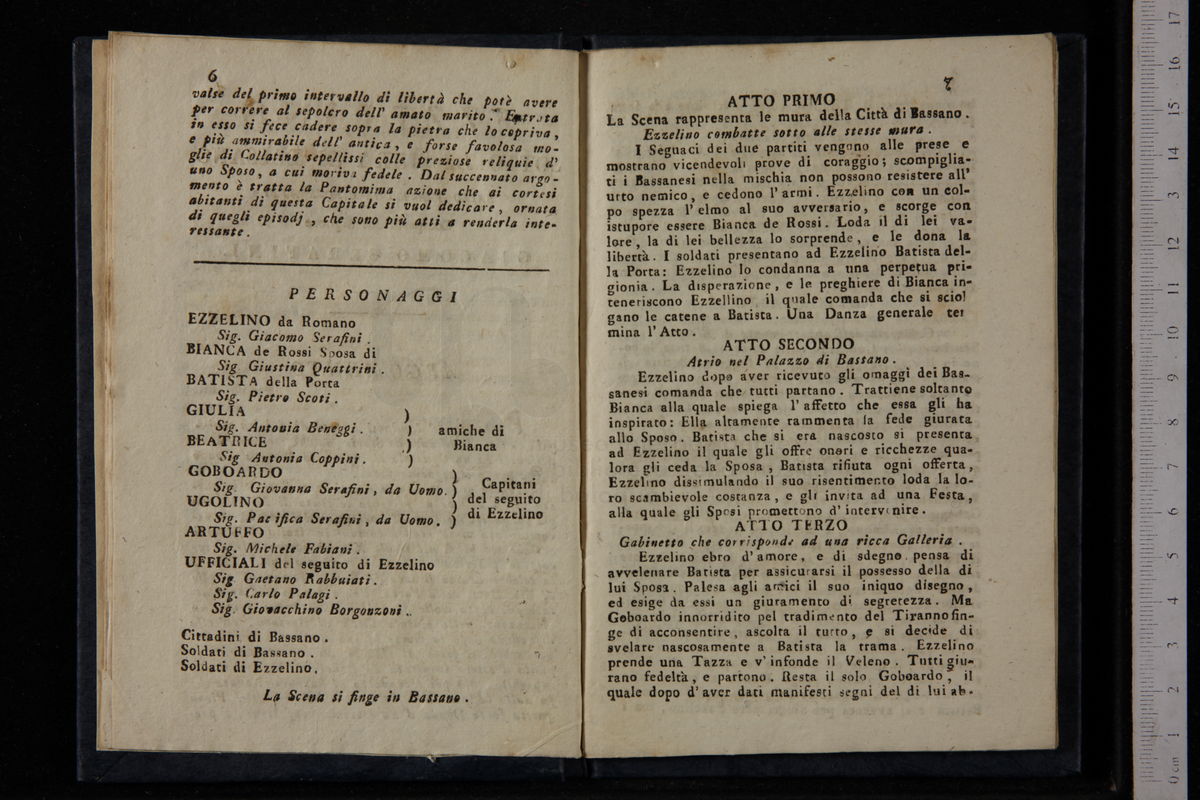 6
valse del primo intervallo di libertà che potè avere
per correre al sepolcro dell' amato marito. Entrata
in esso si fece cadere sopra la pietra che lo copriva,
e più ammirabile dell' antica, e forse favolosa mo-
glie di Collatino sepellissi colle preziose reliquie d'
uno Sposo, a cui moriva fedele. Dal succennato argo-
mento è tratta la Pantomima azione che ai cortesi
abitanti di questa Capitale si vuol dedicare, ornata
di quegli episodj, che sono più atti a renderla inte-
ressante.
PERSONAGGI
EZZELINO da Romano
Sig. Giacomo Serafini.
BIANCA de Rossi Sposa di
Sig Giustina Quattrini.
BATISTA della Porta
Sig. Pietro Scoti.
GIULIA )
Sig. Antonia Beneggi. ) amiche di
BEATRICE ) Bianca
Sig Antonia Coppini. )
GOBOARDO )
Sig. Giovanna Serafini, da Uomo. ) Capitani
UGOLINO ) del seguito
Sig. Pacifica Serafini, da Uomo. ) di Ezzelino
ARTUFFO
Sig. Michele Fabiani.
UFFICIALI del seguito di Ezzelino
Sig Gaetano Rabbuiati.
Sig. Carlo Palagi.
Sig. Giovacchino Borgonzoni..
Cittadini di Bassano.
Soldati di Bassano.
Soldati di Ezzelino.
La Scena si finge in Bassano.
7
ATTO PRIMO
La Scena rappresenta le mura della Città di Bassano.
Ezzelino combatte sotto alle stesse mura.
I Seguaci dei due partiti vengono alle prese e
mostrano vicendevoli prove di coraggio; scompiglia-
ti i Bassanesi nella mischia non possono resistere all'
urto nemico, e cedono l'armi. Ezzelino con un col-
po spezza l'elmo al suo avversario, e scorge con
istupore essere Bianca de Rossi. Loda il di lei va-
lore, la di lei bellezza lo sorprende, e le dona la
libertà. I soldati presentano ad Ezzelino Batista del-
la Porta: Ezzelino lo condanna a una perpetua pri-
gionia. La disperazione, e le preghiere di Bianca in-
teneriscono Ezzellino il quale comanda che si sciol
gano le catene a Batista. Una Danza generale ter
mina l'Atto.
ATTO SECONDO
Atrio nel Palazzo di Bassano.
Ezzelino dopo aver ricevuto gli omaggi dei Bas-
sanesi comanda che tutti partano. Trattiene soltanto
Bianca alla quale spiega l'affetto che essa gli ha
inspirato: Ella altamente rammenta la fede giurata
allo Sposo. Batista che si era nascosto si presenta
ad Ezzelino il quale gli offre onori e ricchezze qua-
lora gli ceda la Sposa, Batista rifiuta ogni offerta,
Ezzelino dissimulando il suo risentimento loda la lo-
ro scambievole costanza, e gli invita ad una Festa,
alla quale gli Sposi promettono d'intervenire.
ATTO TERZO
Gabinetto che corrisponde ad una ricca Galleria.
Ezzelino ebro d'amore, e di sdegno pensa di
avvelenare Batista per assicurarsi il possesso della di
lui Sposa. Palesa agli amici il suo iniquo disegno,
ed esige da essi un giuramento di segretezza. Ma
Goboardo innorridito pel tradimento del Tiranno fin-
ge di acconsentire, ascolta il tutto, e si decide di
svelare nascosamente a Batista la trama. Ezzelino
prende una Tazza e v'infonde il Veleno. Tutti giu-
rano fedeltà, e partono. Resta il solo Goboardo, il
quale dopo d'aver dati manifesti segni del di lui ab-
0 cm 1 2 3 4 5 6 7 8 9 10 11 12 13 14 15 16 17